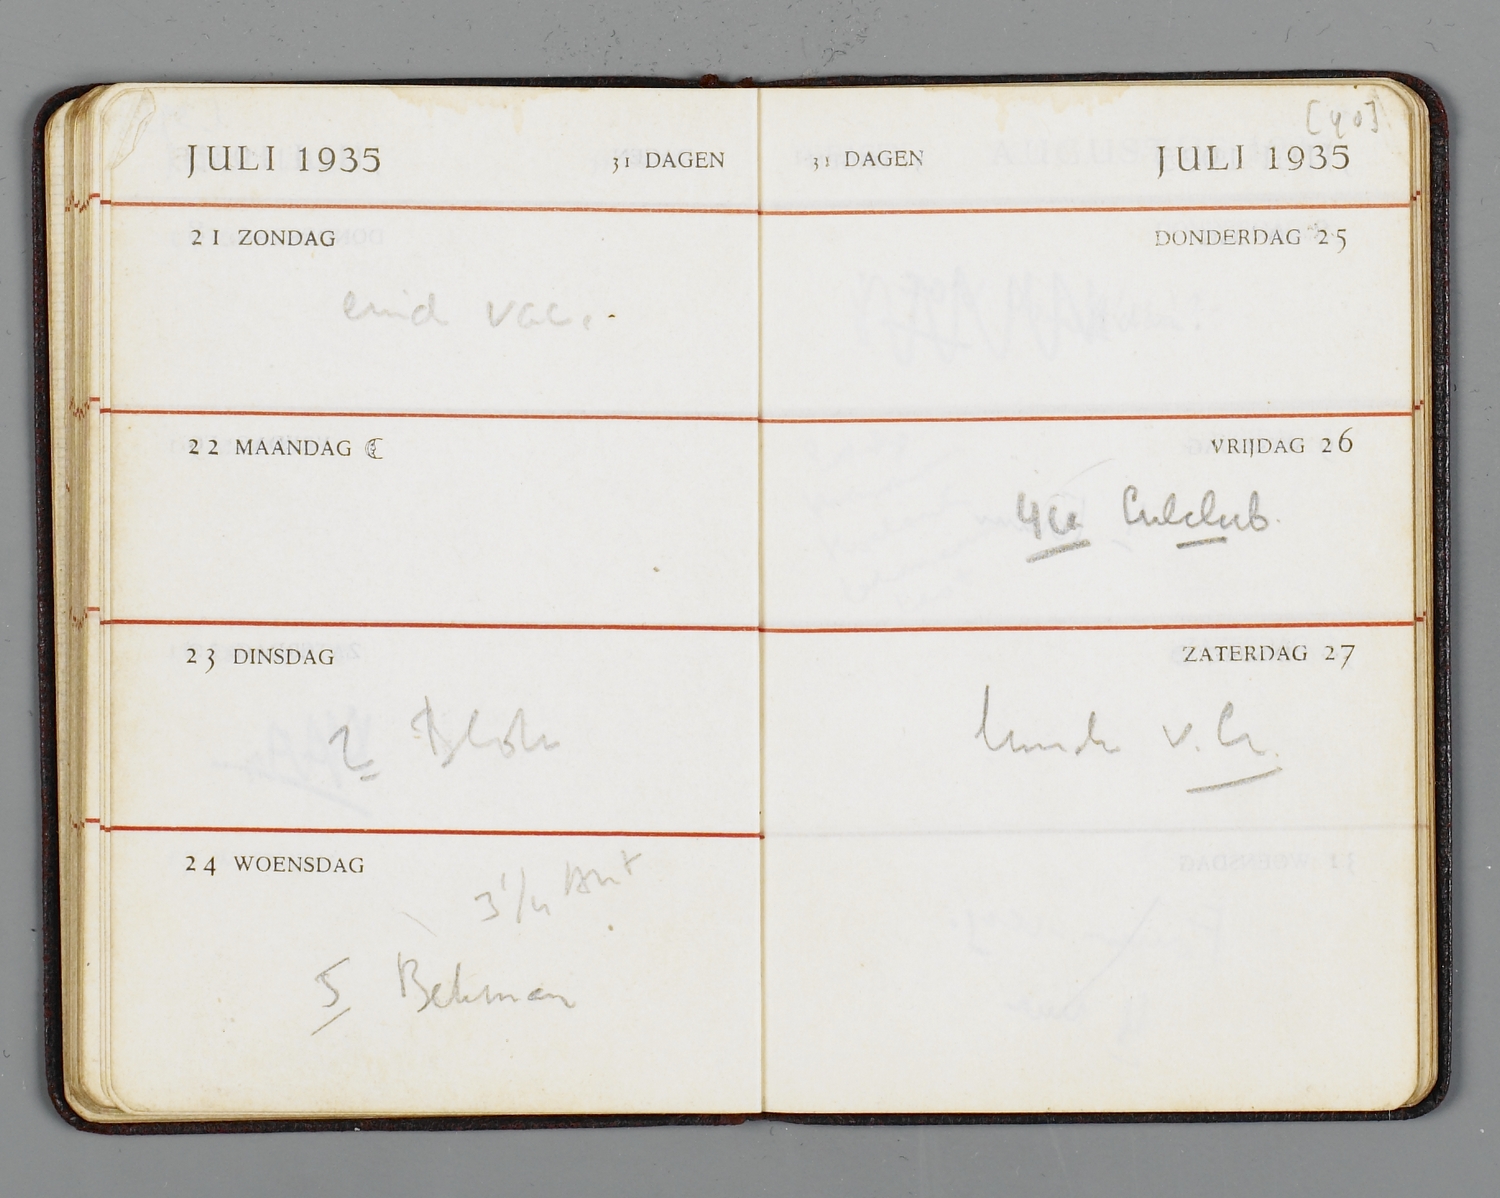 JULI 1935 31 DAGEN
21 ZONDAG
eind vac.
22 MAANDAG
23 DINSDAG
2
24 WOENSDAG
3 1/4
5 Bekman
[40]
31 DAGEN JULI 1935
DONDERDAG 25
VRIJDAG 26
Culclub.
ZATERDAG 27